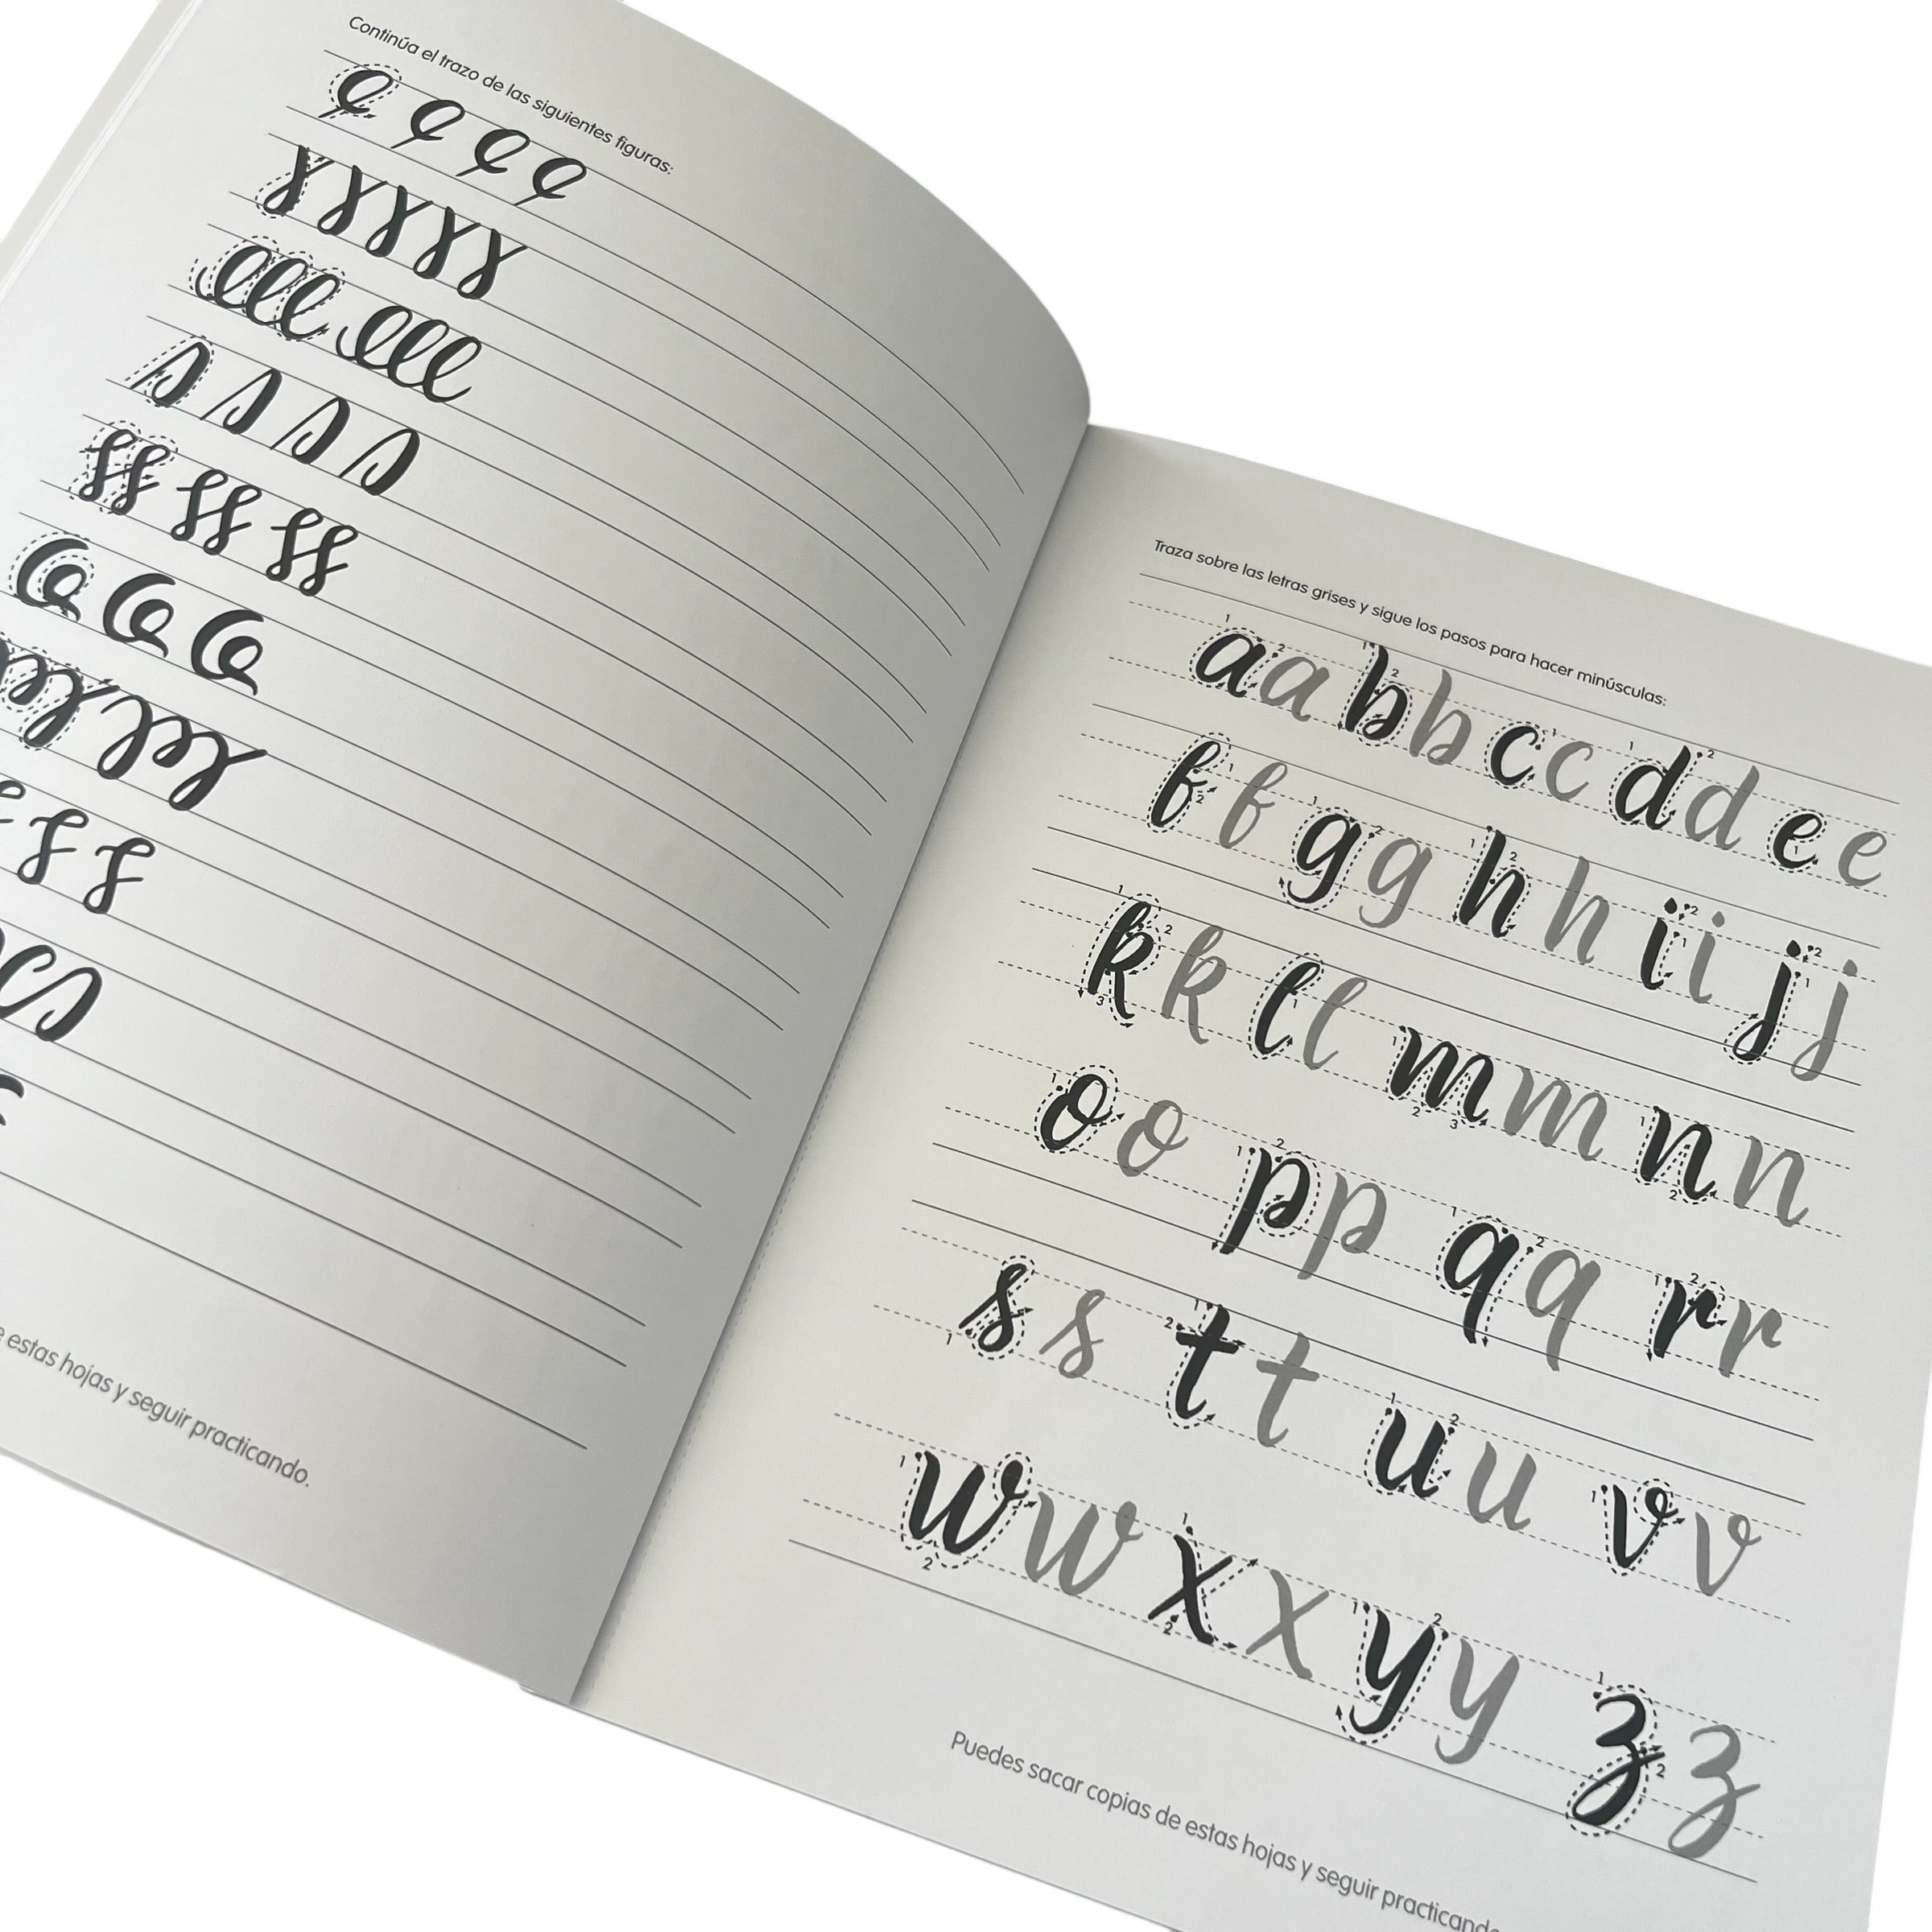 Continúa el trazo de las siguientes figuras:
estas hojas y seguir practicando.
Traza sobre las letras grises y sigue los pasos para hacer minúsculas:
a a b b c c d d e e
f f g g h h i i j j
k k l l m m n n
o o p p q q r r
s s t t u u v v
w w x x y y z z
Puedes sacar copias de estas hojas y seguir practicando